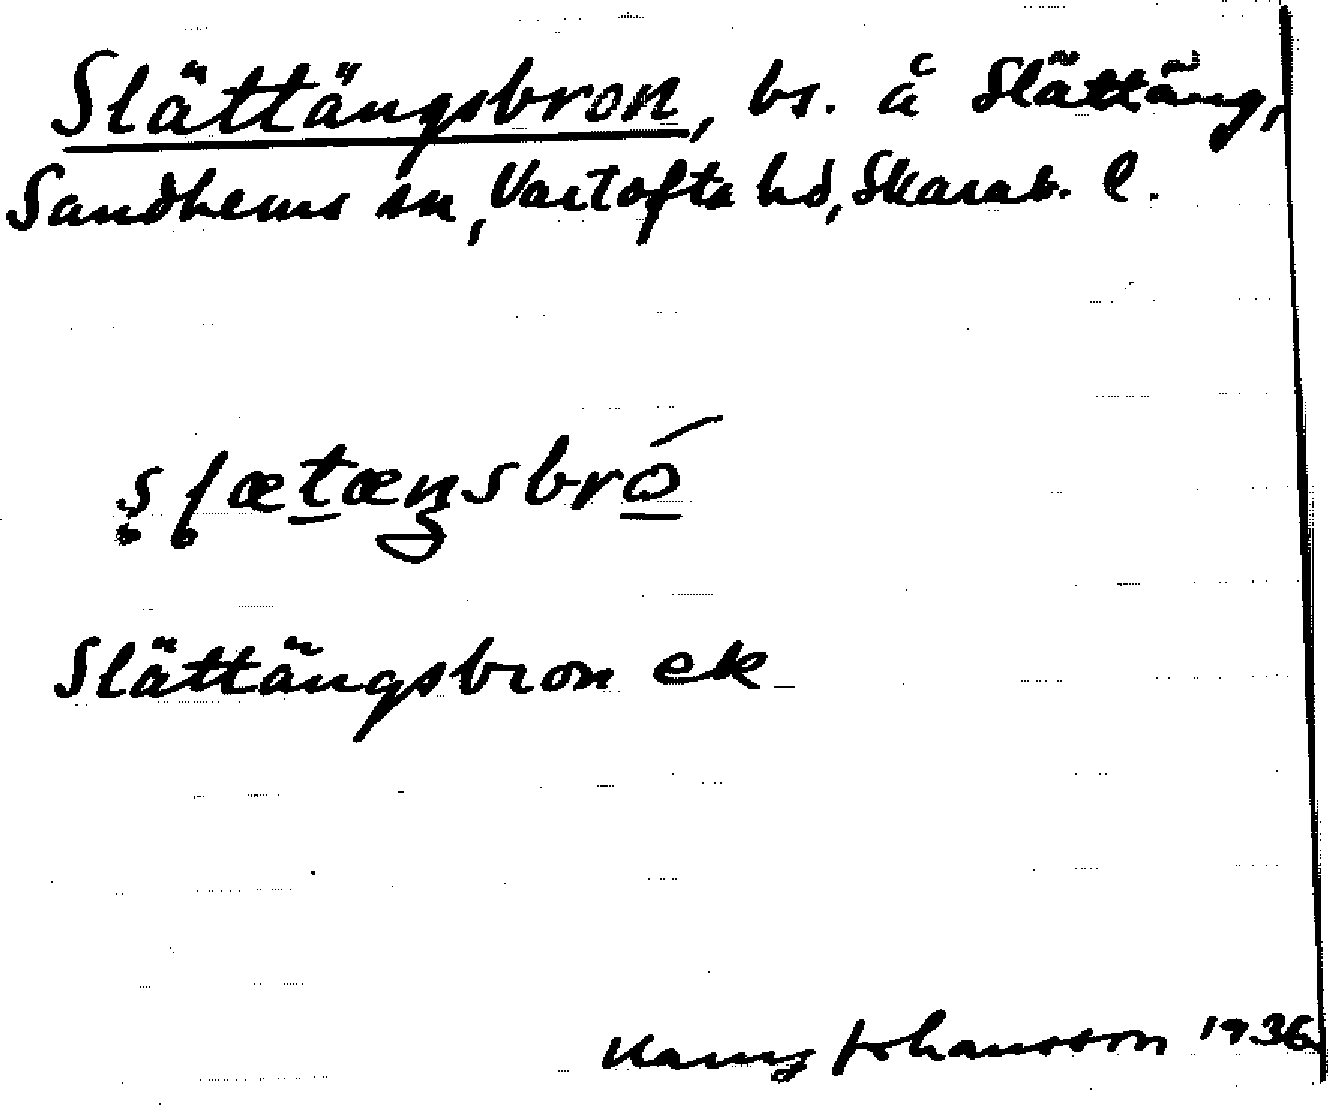 Slättängsbron, bs. å Slättäng,
Sandhems sn, Vartofta hd, Skarab. l.
Slättängsbron ek
Johansson 1936